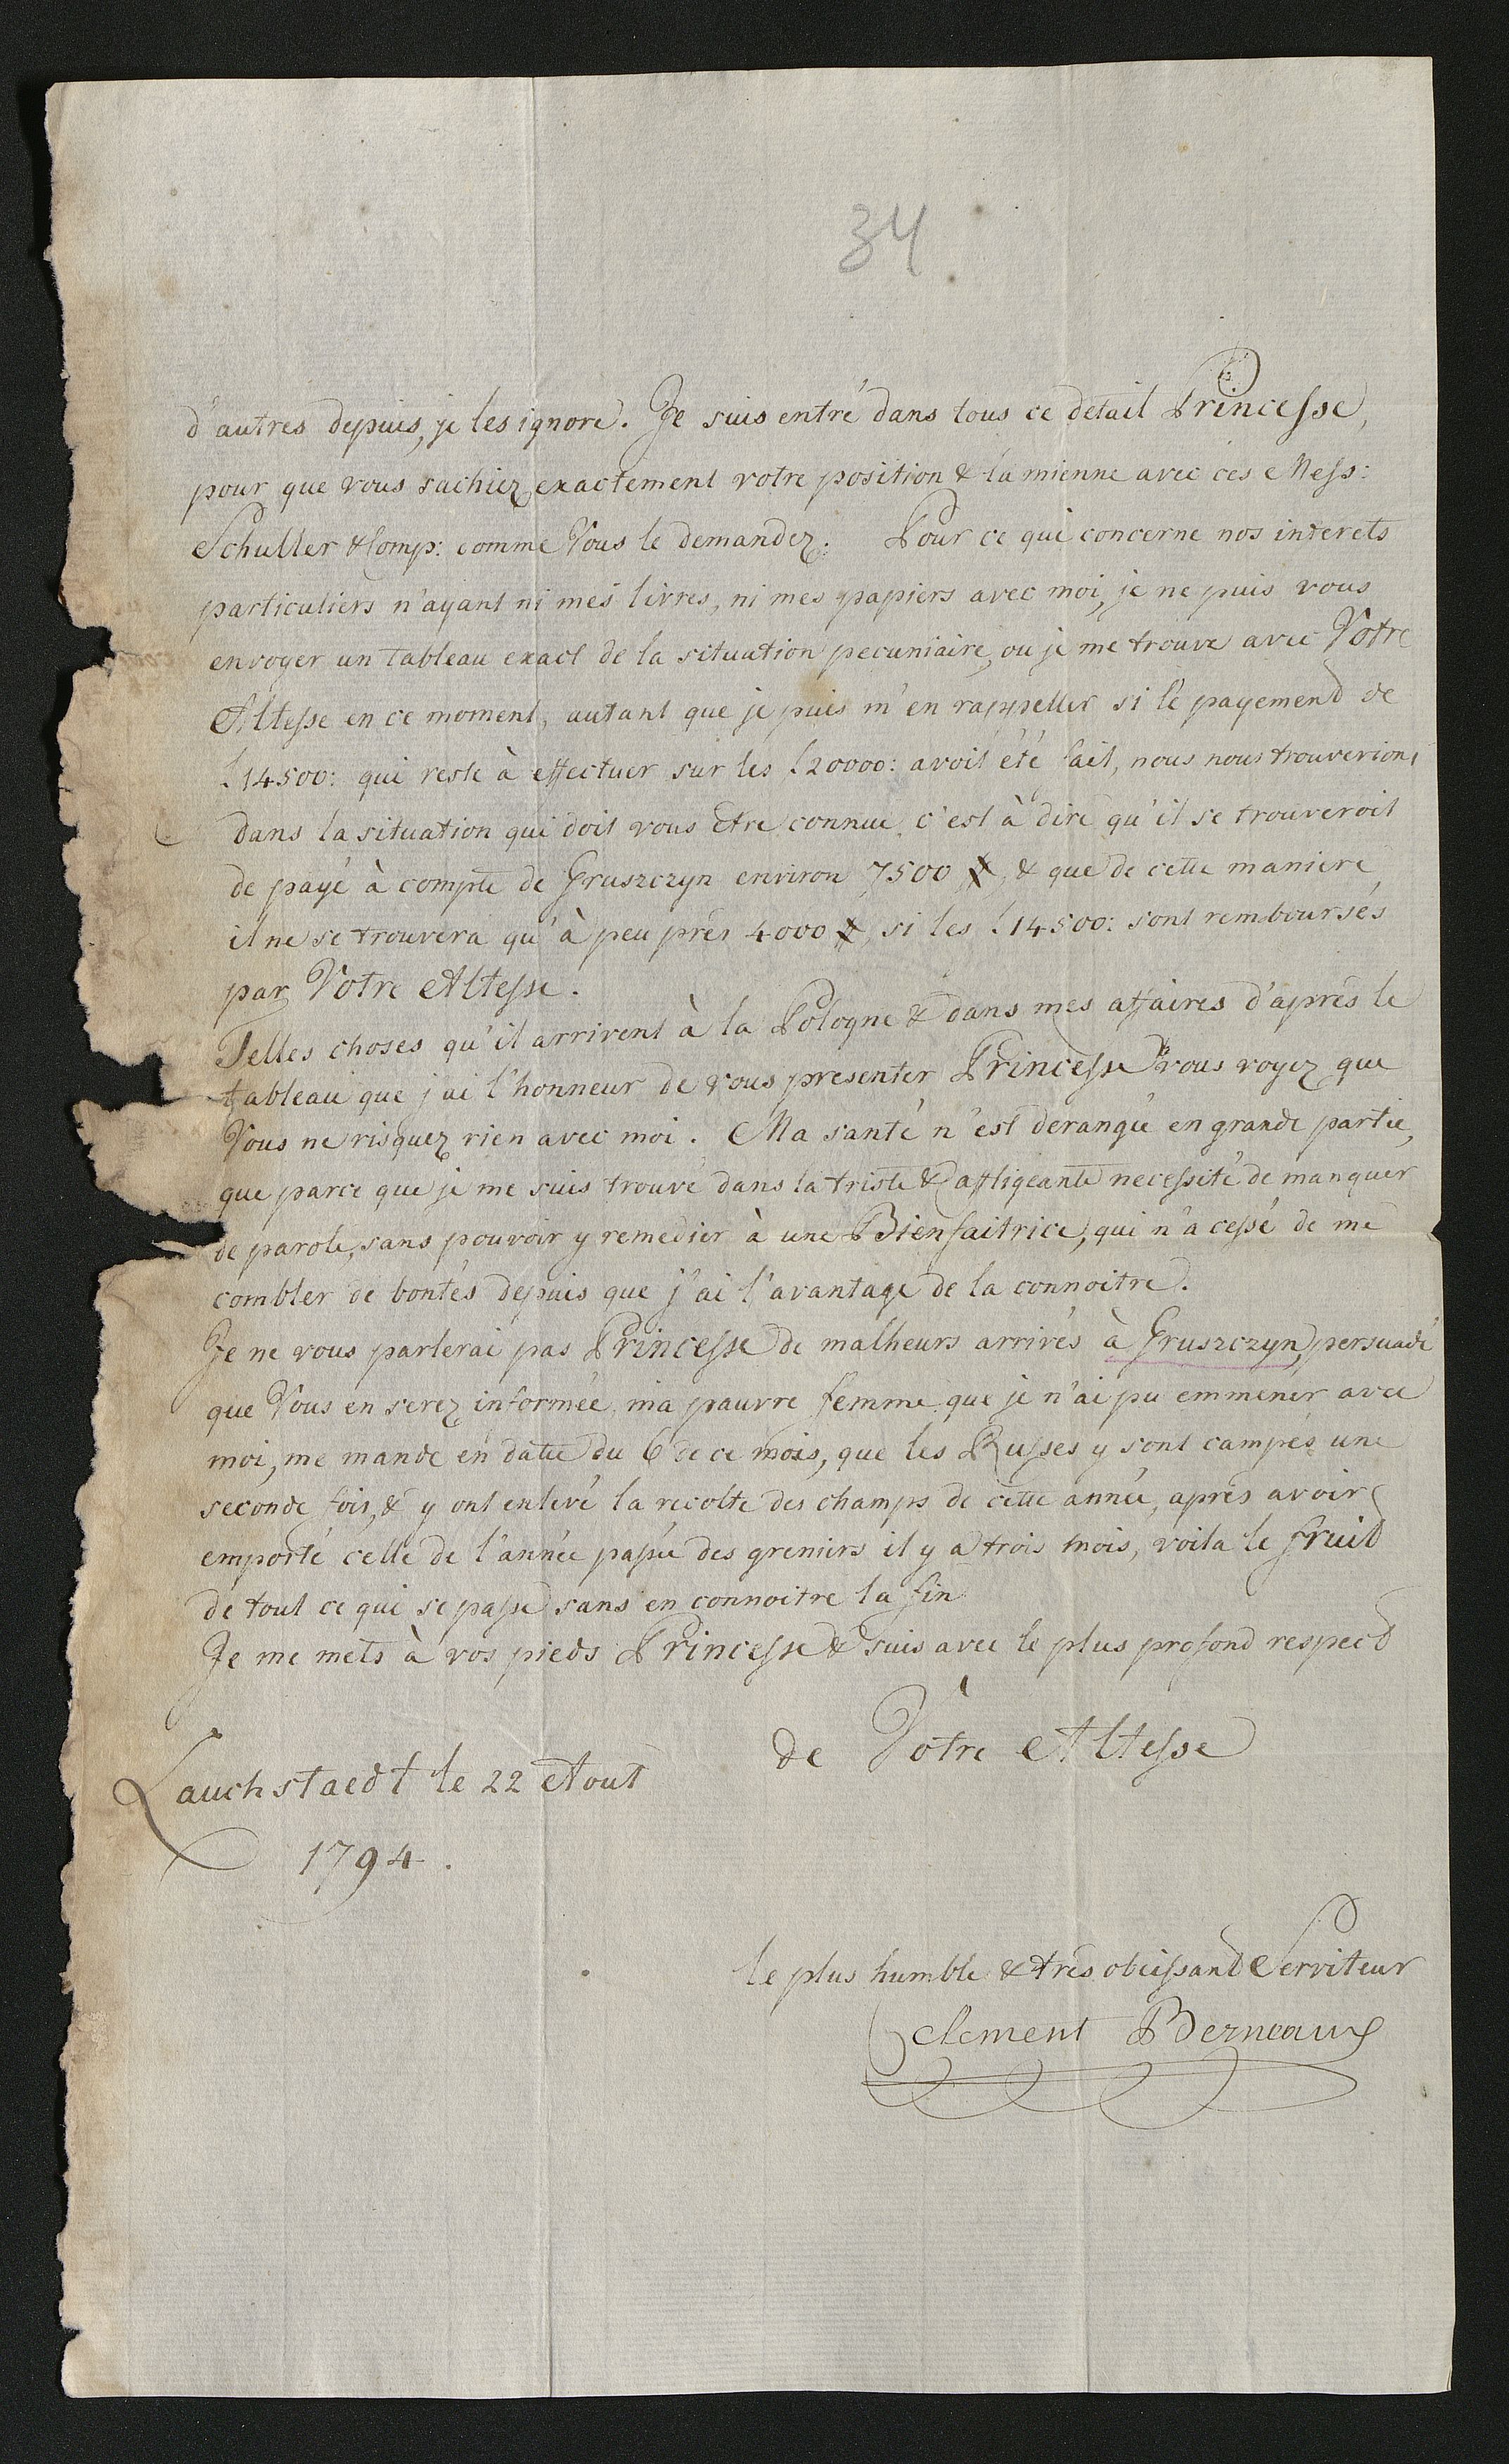 34
d'autres depuis, je les ignore. Je suis entré dans tous ce detail Princesse,
pour que vous sachiez exactement votre position & la mienne avec ces Mess:
Schuller & Comp: comme Vous le demandez. Pour ce qui concerne nos interets
particuliers n'ayant ni mes livres, ni mes papiers avec moi, je ne puis vous
envoyer un tableau exact de la situation pecuniaire, ou je me trouve avec Votre
Altesse en ce moment, autant que je puis m'en rappeller si le payement de
14500: qui reste à effectuer sur les 20000: avoit été fait, nous nous trouverions
dans la situation qui doit vous etre connue, c'est à dire qu'il se trouveroit
de payé à compte de Gruszczyn environ 7500 & que de cette maniere,
il ne se trouvera qu'à peu prés 4000 si les 14500: sont remboursés
par Votre Altesse.
Telles choses qu'il arrivent à la Pologne & dans mes affaires d'aprés le
tableau que j'ai l'honneur de vous presenter Princesse vous voyez que
Vous ne risquez rien avec moi. Ma santé n'est derangée en grande partie,
que parce que je me suis trouvé dans la triste & affligeante necessité de manquer
de parole, sans pouvoir y remedier à une Bienfaitrice, qui n'a cessé de me
combler de bontés depuis que j'ai l'avantage de la connoitre.
Je ne vous parlerai pas Princesse de malheurs arrivés à Gruszczyn, persuadé
que Vous en serez informée, ma pauvre femme, que je n'ai pu emmener avec
moi, me mande en datte du 6 de ce mois, que les Russes y sont campés une
seconde fois, & y ont enlevé la recolte des champs de cette année, aprés avoir
emporté celle de l'année passée des greniers il y a trois mois, voila le fruit
de tout ce qui se passe sans en connoitre la fin
Je me mets à vos pieds Princesse & suis avec le plus profond respect
de Votre Altesse
Lauchstaedt le 22 Aout
1794.
le plus humble & trés obeissant Serviteur
Clement Berneaux